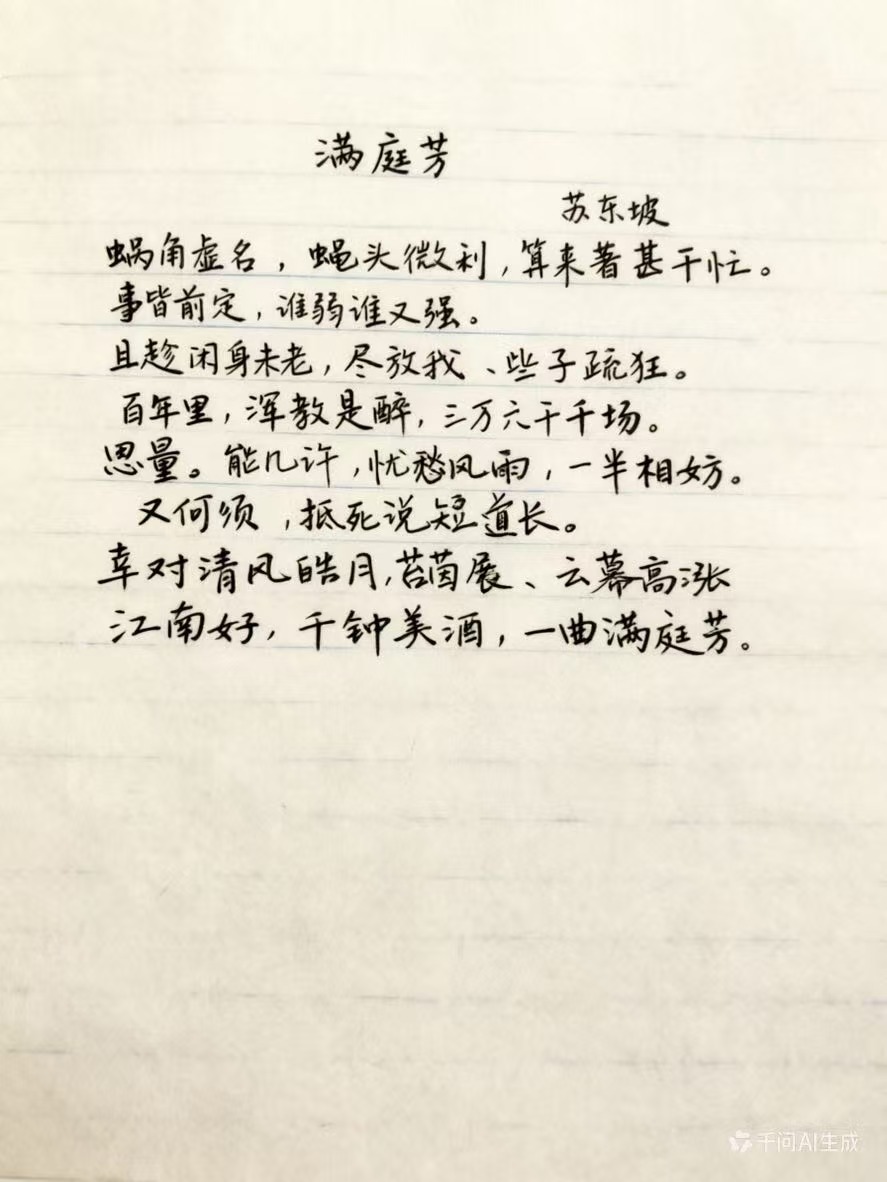 满庭芳
苏东坡
蜗角虚名，蝇头微利，算来著甚干忙。
事皆前定，谁弱谁又强。
且趁闲身未老，尽放我、些子疏狂。
百年里，浑教是醉，三万六千千场。
思量。能几许，忧愁风雨，一半相妨。
又何须，抵死说短道长。
幸对清风皓月，苔茵展、云幕高涨
江南好，千钟美酒，一曲满庭芳。
千问AI生成